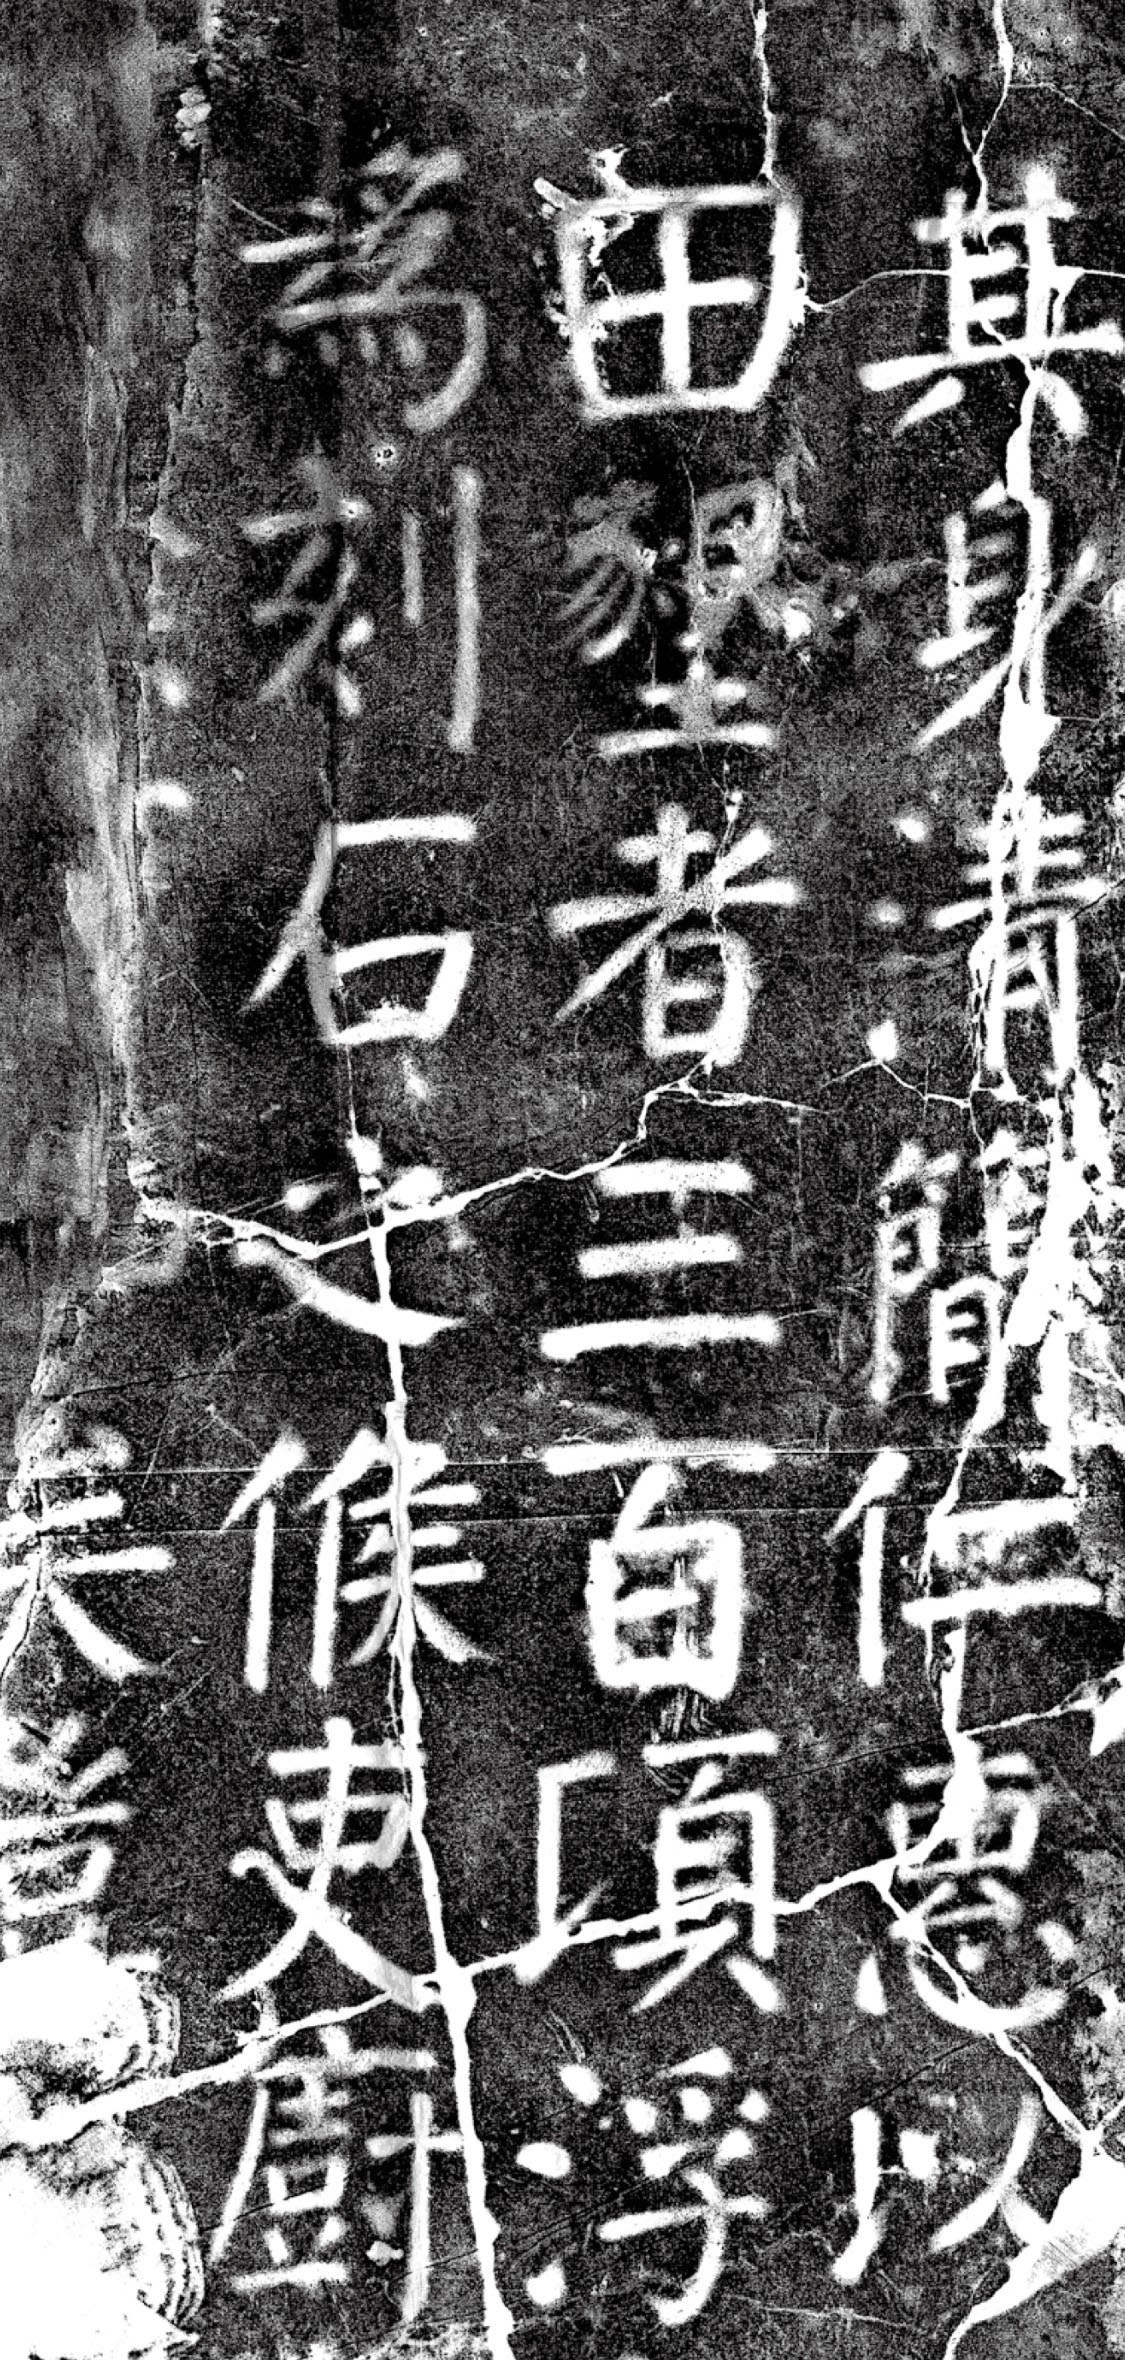 其身清簡仁惠以
田墾者三百頃浮
爲刻石之候吏廚